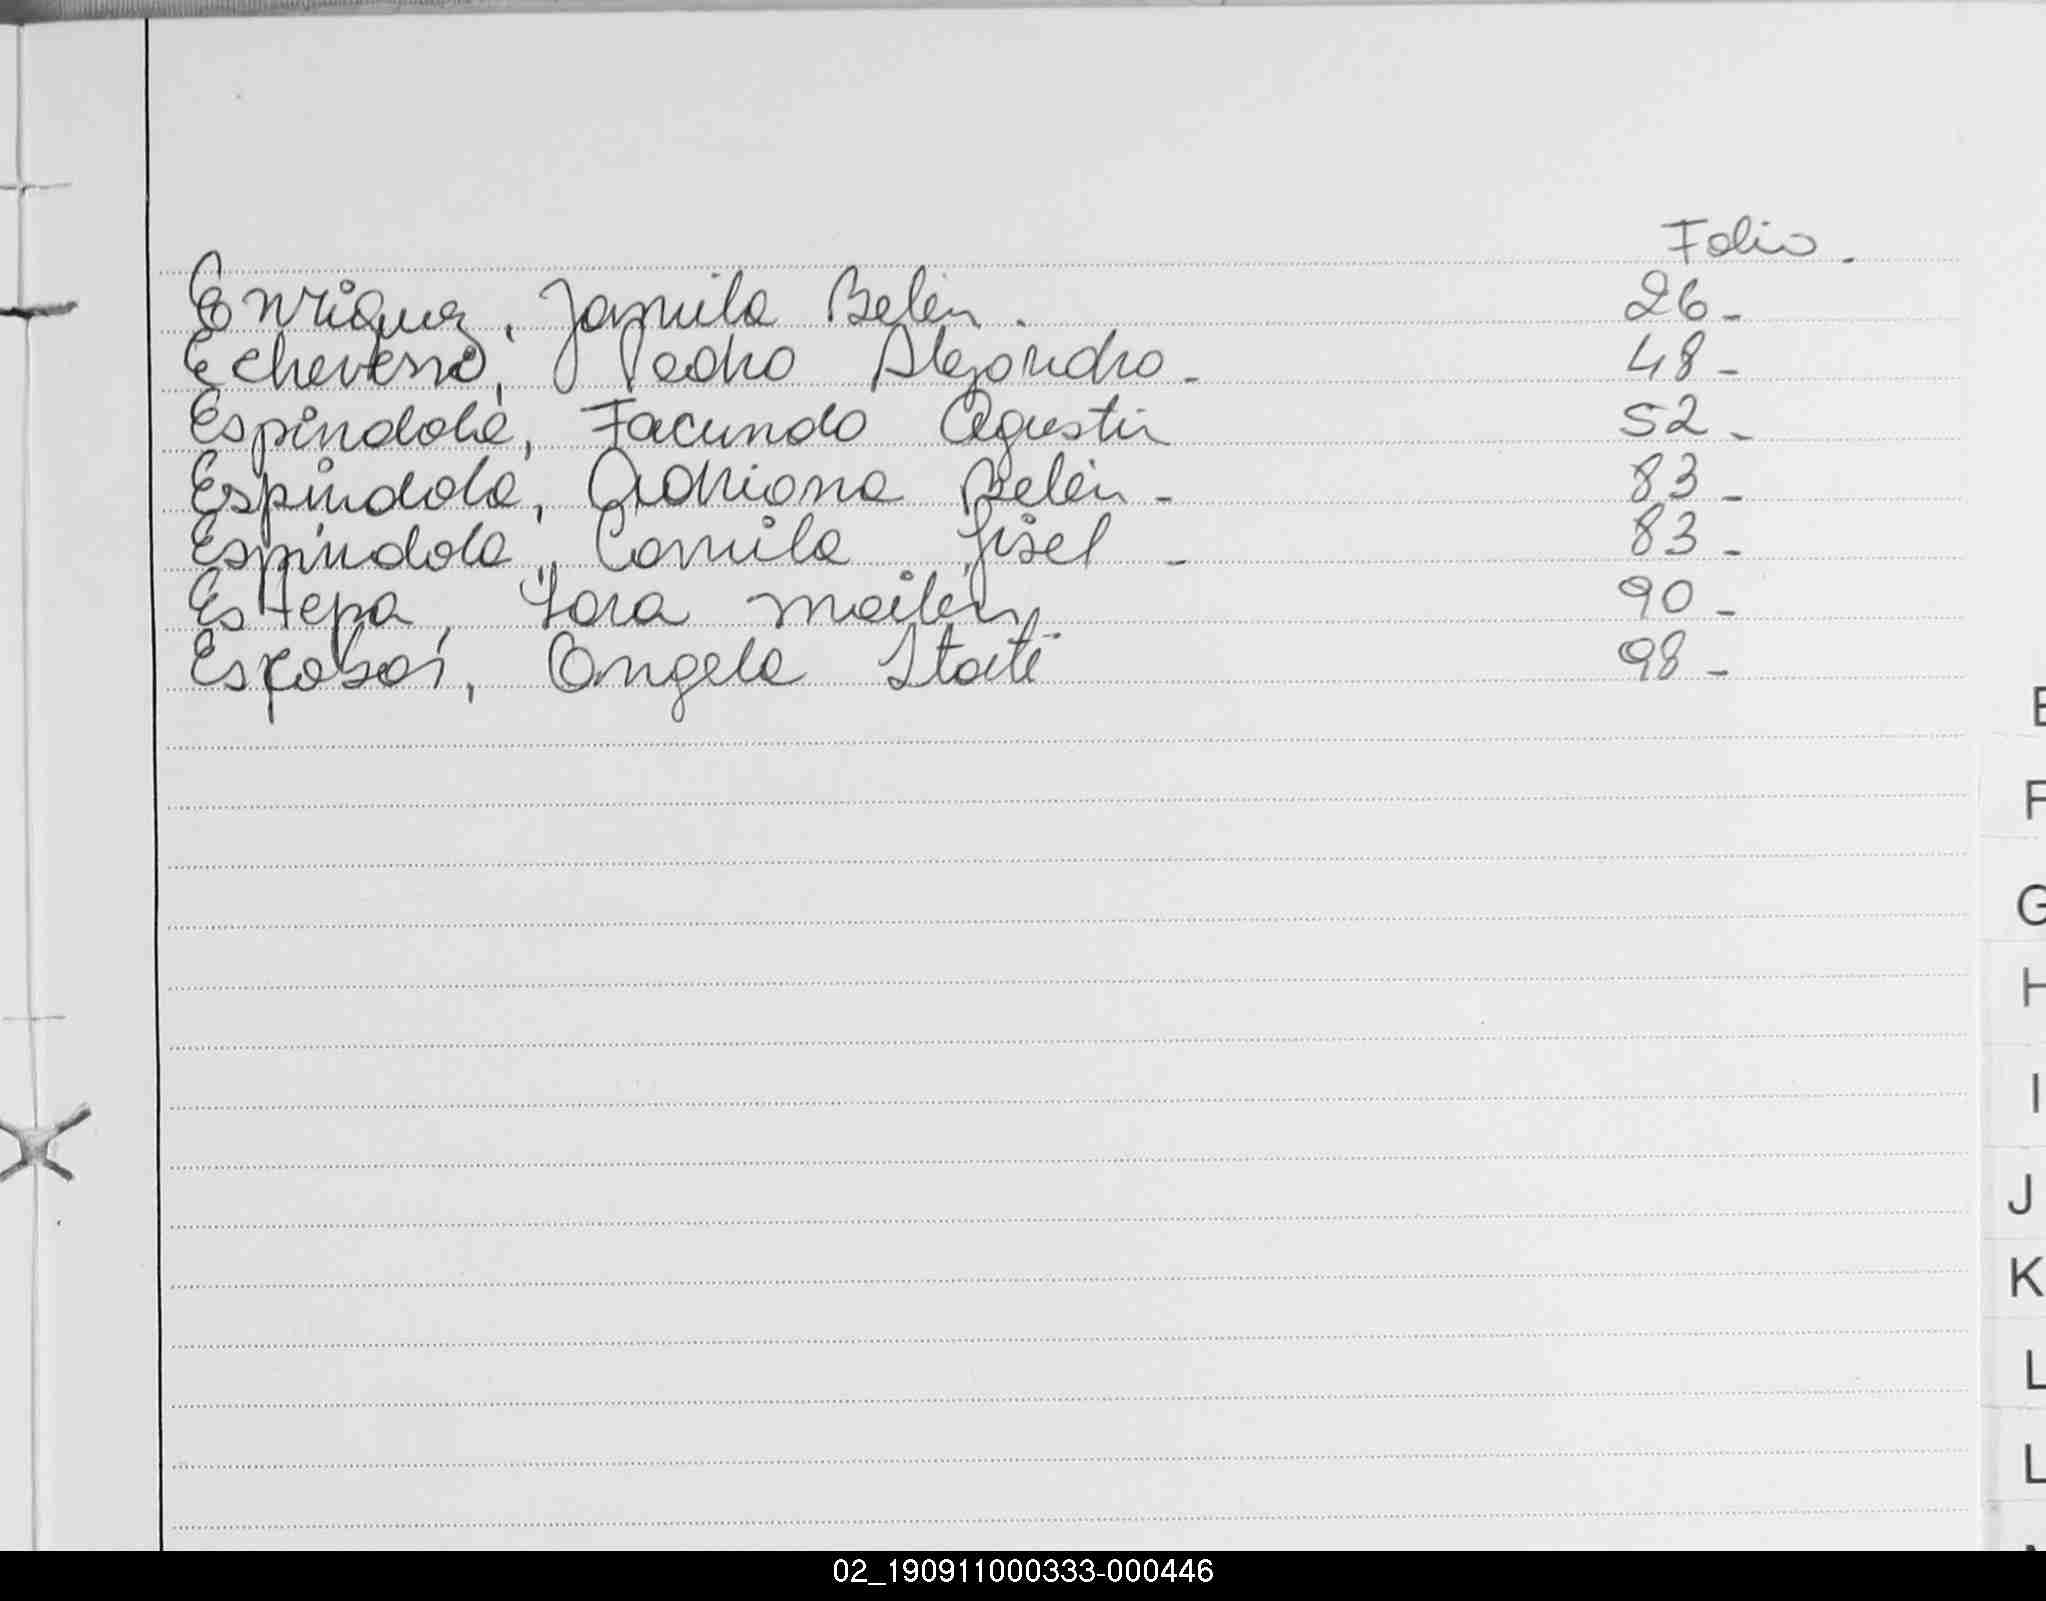 Folio.
Enriquez, Jamila Belén. 26-
Echeverria, Pedro Alejandro- 48-
Espindola, Facundo Agustin 52-
Espindola, Adriana Belén- 83-
Espíndola, Camila Gisel - 83-
Estepa, Yara Mailén 90-
Escobar, Angela Itatí 98-
E
F
G
H
I
J
K
L
L
02_190911000333-000446